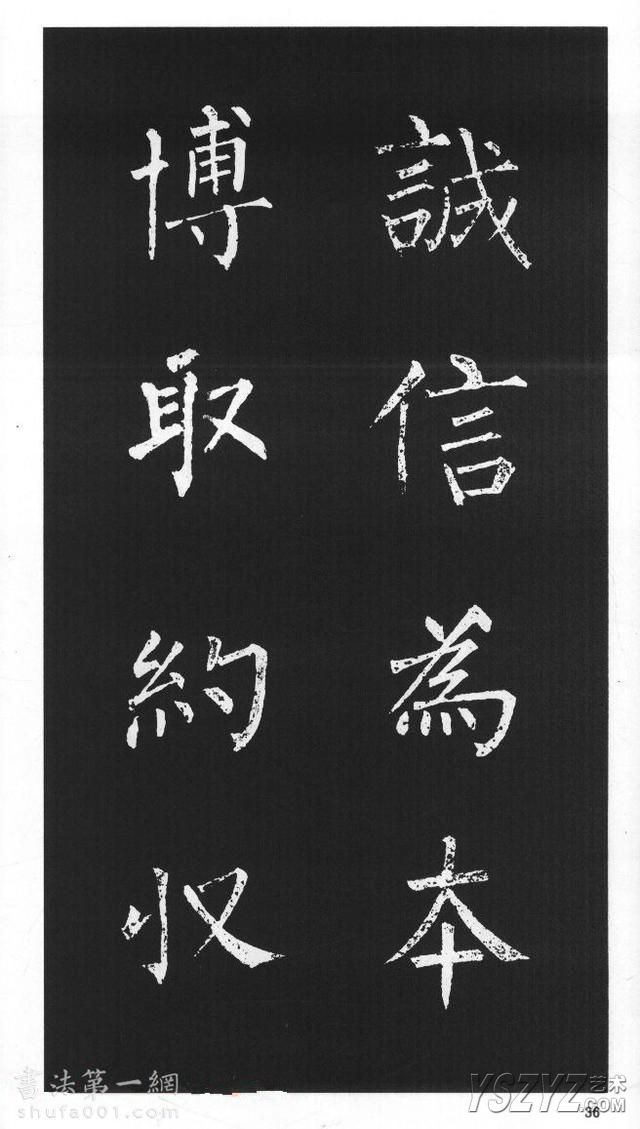 誠信為本
博取約収
書法第一網
shufa001.com
YSZYZ艺术
.COM
36